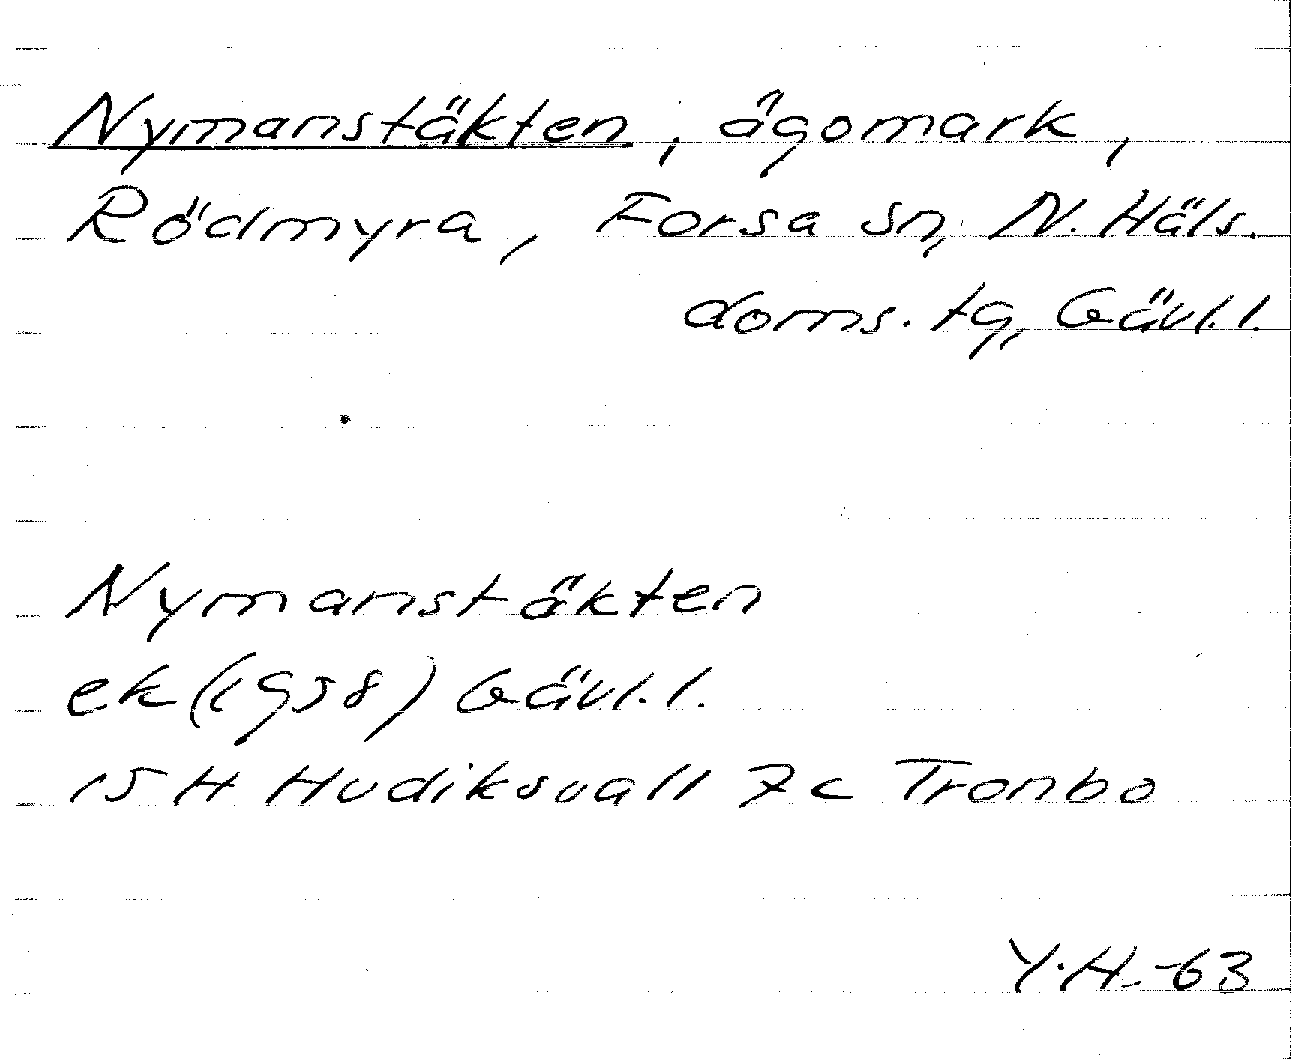 Nymanstäkten, ägomark,
Rödmyra, Forsa sn, N. Häls.
doms. tg, Gävl.l.
Nymanstäkten
ek (1958) Gävl.l.
15 H Hudiksvall 7c Tronbo
Y.H.-63